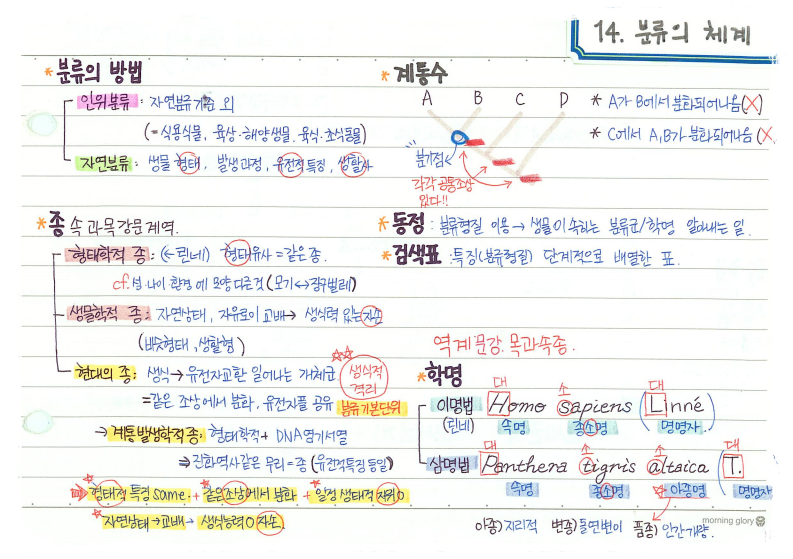 14. 분류의 체계
* 분류의 방법
인위분류 : 자연분류기준 외
(= 식용식물, 육상·해양생물, 육식·초식동물)
자연분류 : 생물 형태, 발생과정, 유전적특징, 생활사
* 계통수
A B C D
분기점
각각 공통조상
있다!!
* A가 B에서 분화되어나옴 (X)
* C에서 A,B가 분화되어나옴 (X
* 종 속 과 목 강 문 계 역.
형태학적 종 : (← 린네) 형태유사 = 같은 종.
cf. 나이 환경에 모양 다른것 (모기 ↔ 장구벌레)
생물학적 종 : 자연상태, 자유로이 교배 → 생식력 있는 자손
(비슷형태, 생활형)
현대의 종 : 생식 → 유전자교환 일어나는 개체군
생식적
격리
= 같은 조상에서 분화, 유전자풀 공유 분류기본단위
→ 계통발생학적 종 : 형태학적 + DNA염기서열
⇒ 진화역사같은 무리 = 종 (유전적특징 동일)
⇒ 형태적 특징 same. + 같은조상에서 분화 + 일정 생태적 지위 O
* 자연상태 → 교배 → 생식능력 O 자손.
* 동정 : 분류형질 이용 → 생물이 속하는 분류군/학명 알아내는 일.
* 검색표 : 특징(분류형질) 단계적으로 배열한 표.
역계문강.목과속종.
* 학명
대 소 대
이명법 Homo sapiens (Linné)
(린네) 속명 종소명 명명자.
대 소 소 대
삼명법 Panthera tigris altaica (T.
속명 종소명 아종명 명명자
아종) 지리적 변종) 돌연변이 품종) 인간개량.
morning glory